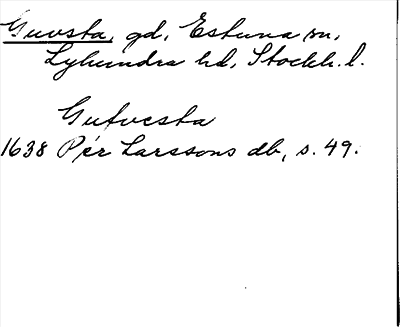 Guvsta, gd, Estuna sn,
Lyhundra hd, Stockh. l.
Gutvesta
1638 Per Larssons db, s. 49.